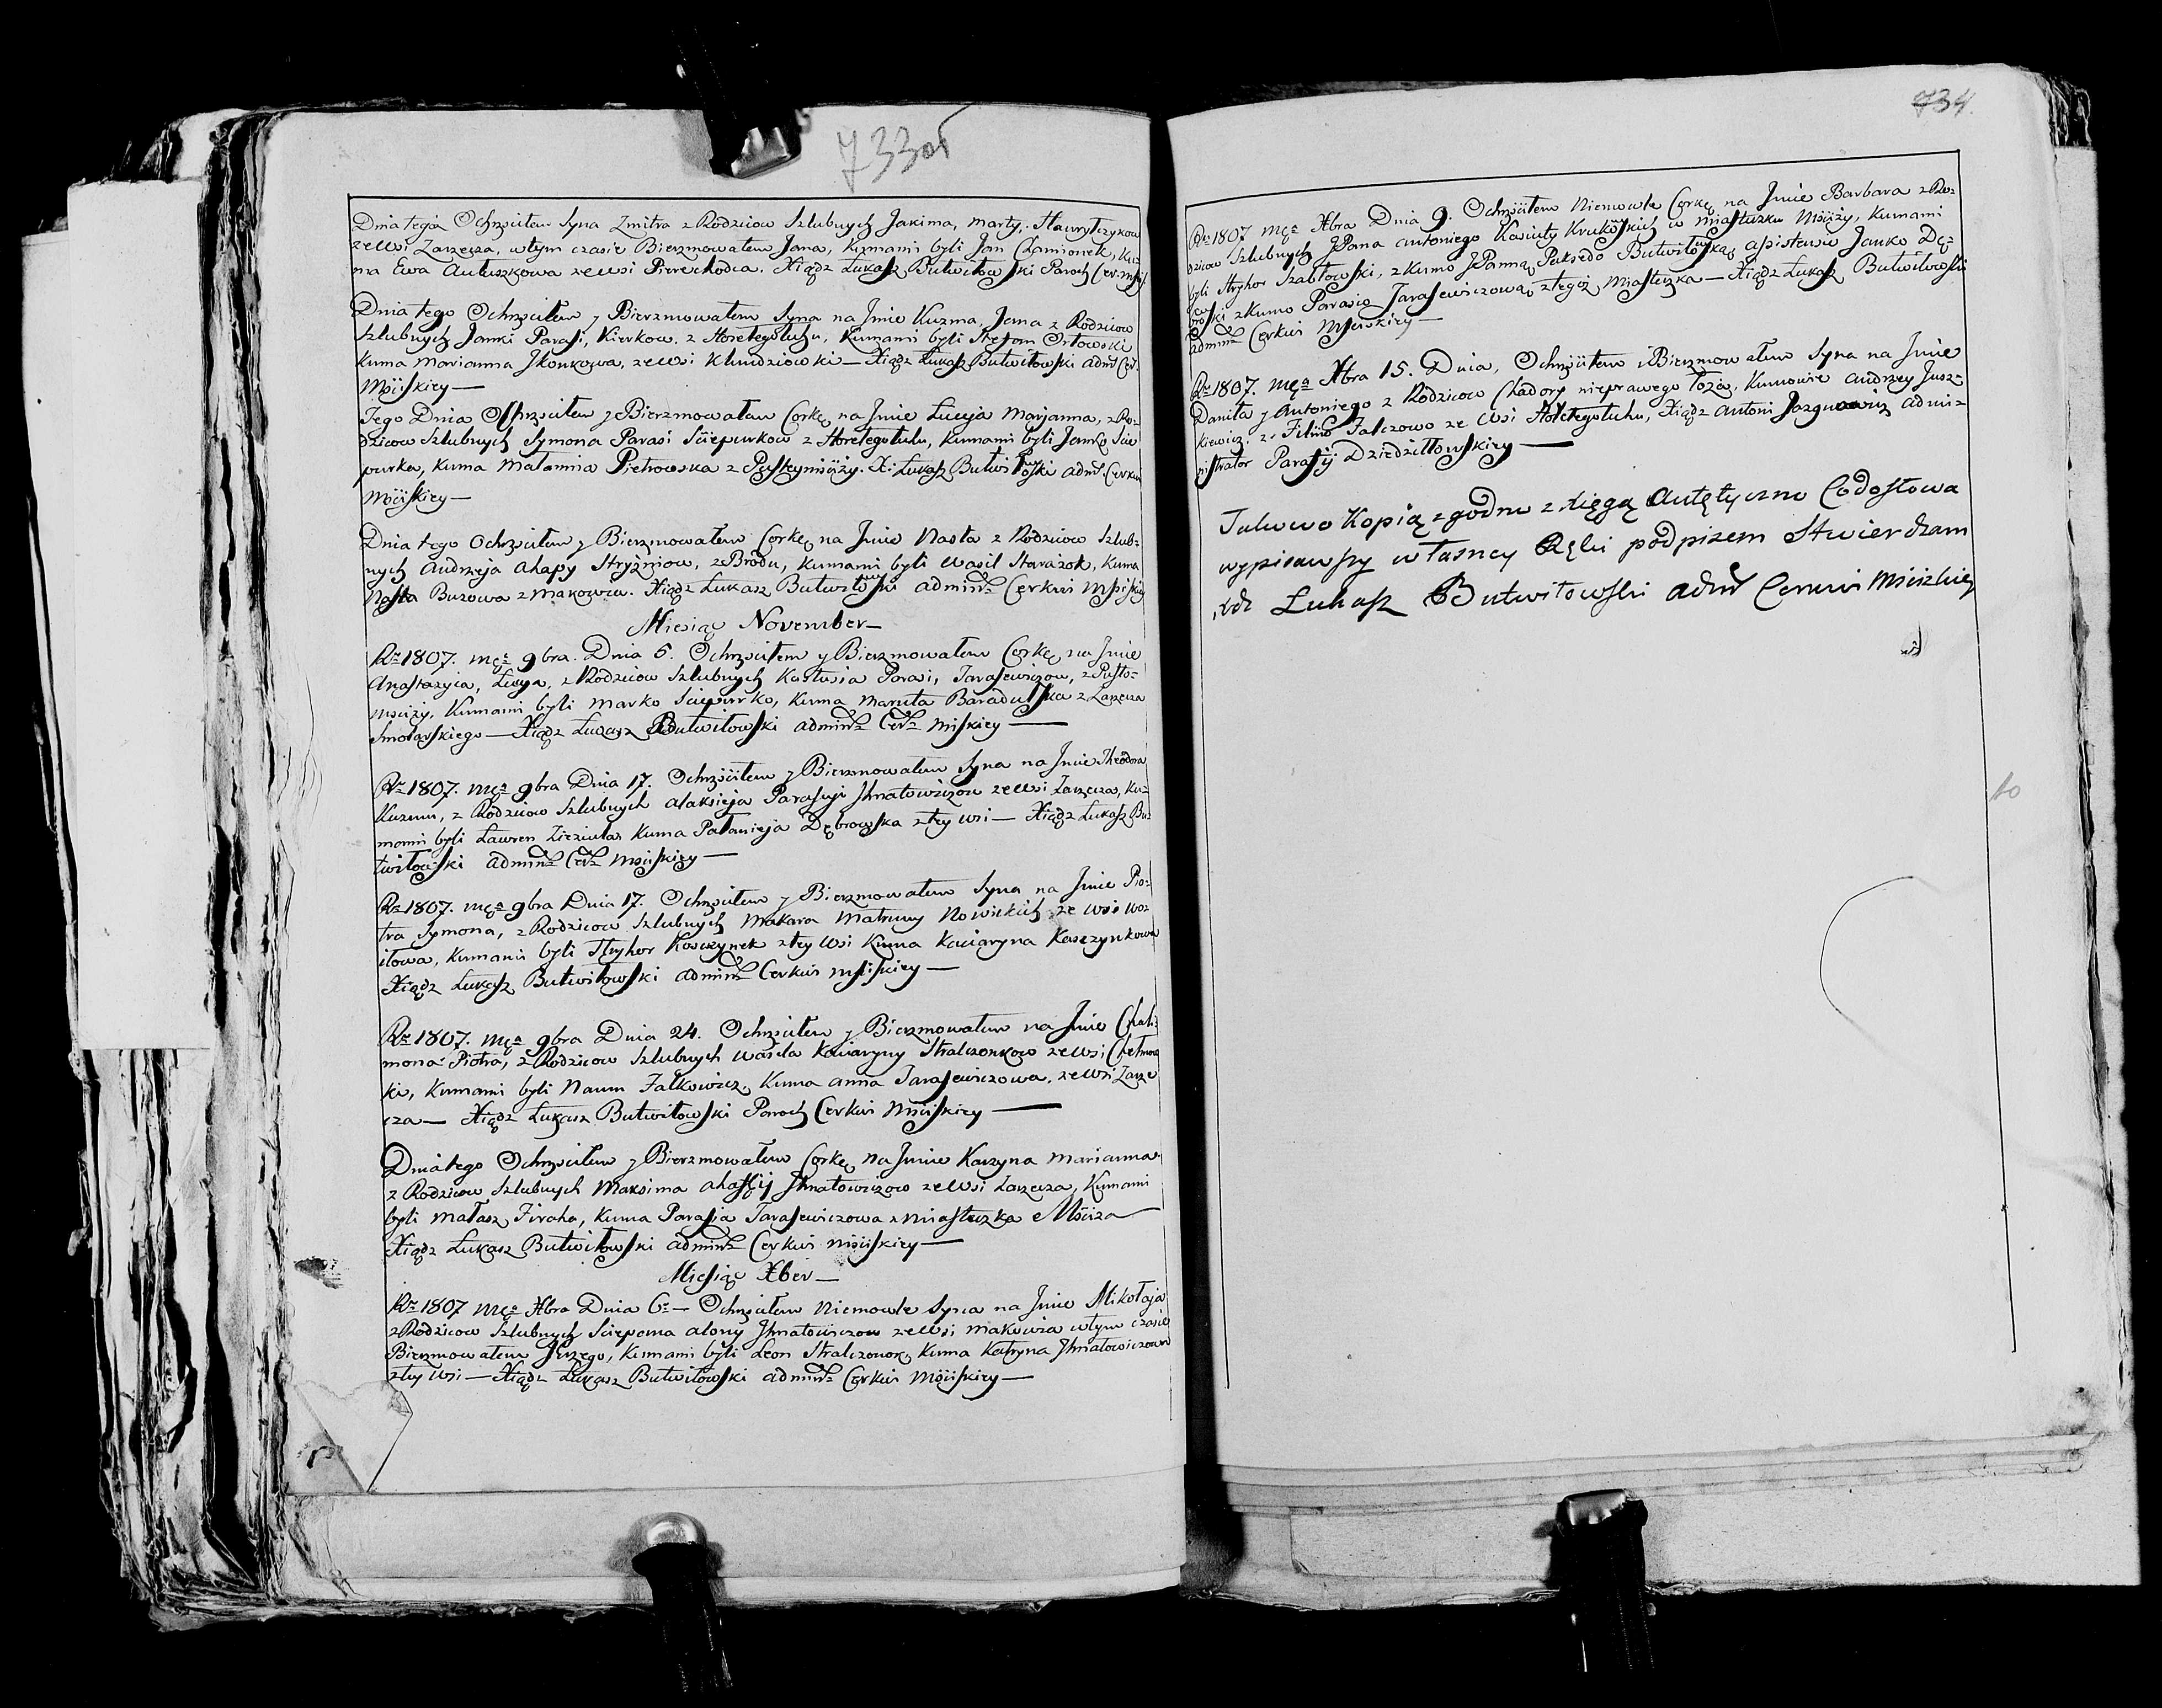 733об
Dnia tega Ochrzciłem Syna Zmitra z Rodzicow Szlubnych Jakima, Marty, Hawrylczykow
ze Wsi Zarzecza, w tym czasie Bierzmowałem Jana, Kumami byli Jan Chamionek, Ku=
ma Ewa Autuszkowa ze Wsi Pierechodca. Xiądz Łukasz Butwiłowski Paroch Cer. Mści.
Dnia tego Ochrzciłem y Bierzmowałem Syna na Jmie Kuzma, Jana z Rodzicow
Szlubnych Janki Parasi, Kierkow. z Horełegołuhu, Kumami byli Stefan Orłowski
Kuma Marianna Jkonkowa, ze Wsi Khudziowki — Xiądz Łukasz Butwiłowski Admł Cer.
Mściskiey —
Tego Dnia Ochrzciłem y Bierzmowałem Corkę na Jmie Lucyja Marjanna, z Ro=
dzicow Szlubnych Symona Parasi Sciepurkow z Horełegołuhu, Kumami byli Janko Scie
purka, Kuma Małannia Pietrowska z Pusteymściży. X. Łukasz Butwiłowski Admł. Cerkwi
Mściskiey —
Dnia tego Ochrzciłem y Bierzmowałem Corkę na Jmie Nasta z Rodzicow Szlub=
nych Andrzeja Ahapy Stryżniow, z Brodu, Kumami byli Wasil Starażok, Kuma
Nasta Buzowa z Makowia. Xiądz Łukasz Butwiłowski Adminł Cerkwi Mściskiey
Miesiąc November —
Rₒ 1807. Mcₐ 9bra. Dnia 6. Ochrzciłem y Bierzmowałem Corkę na Jmie
Anastazyia, Lucya, z Rodzicow Szlubnych Kastusia Parasi, Tarasewiczow, z Pusto=
mściży. Kumami byli Marko Sciepurko, Kuma Maruta Baradulska z Zarzecza
Smolarskiego — Xiądz Łukasz Butwiłowski Adminł Cerł Mściskiey —
Rₒ 1807. Mcₐ 9bra Dnia 17. Ochrzciłem y Bierzmowałem Syna na Jmie Theodora
Kuzmu, z Rodzicow Szlubnych Alaksieja Paraskji Jhnatowiczow ze Wsi Zarzecza, Ku=
mami byli Ławren Zieziula Kuma Pałanieja Dębrowska z tey Wsi — Xiądz Łukasz Bu=
twiłowski Adminł Cerł Mściskiey —
Rₒ 1807. Mcₐ 9bra Dnia 17. Ochrzciłem y Bierzmowałem Syna na Jmie Pio=
tra Symona, z Rodzicow Szlubnych Makara Matruny Nowickich ze Wsi Wo=
iłowa, Kumami byli Hryhor Kosczynek z tey Wsi Kuma Kaciaryna Kasczynkowa
Xiądz Łukasz Butwiłowski Adminł Cerkwi Mściskiey —
Rₒ 1807. Mcₐ 9bra Dnia 24. Ochrzciłem y Bierzmowałem na Jmie Chali=
mona Piotra, z Rodzicow Szlubnych Wasila Kaciaryny Stralczonkow ze Wsi Chełmow
ki, Kumami byli Naum Falkowicz, Kuma Anna Tarasewiczowa, ze Wsi Zarze
cza — Xiądz Łukasz Butwiłowski Paroch Cerkwi Mściskiey —
Dnia tego Ochrzciłem y Bierzmowałem Corkę na Jmie Karzyna Marianna
z Rodzicow Szlubnych Maksima Ahafij Jhnatowiczow ze Wsi Zarzecza, Kumami
byli Małasz Firaha, Kuma Parasia Tarasewiczowa z Miasteczka Mściża
Xiądz Łukasz Butwiłowski Adminł Cerkwi Mściskiey —
Miesiąc Xber —
Rₒ 1807 Mcₐ Xbra Dnia 6ₒ — Ochrzciłem Niemowle Syna na Jmie Mikołaja
z Rodzicow Szlubnych Sciepana Alony Jhnatowiczow ze Wsi Makowia w tym czasie
Bierzmowałem Jerzego, Kumami byli Leon Stralczonok, Kuma Katryna Jhnatowiczowa
z tey Wsi — Xiądz Łukasz Butwiłowski Adminł Cerkwi Mściskiey —
734.
Rₒ 1807 Mcₐ Xbra Dnia 9. Ochrzciłem Niemowle Corkę na Jmie Barbara z Ro=
dzicow Szlubnych JPana Antoniego Kasiuty Krukowskich w Miasteczku Mściży, Kumami
byli Hryhor Szabłowski, z Kumo JPanną Paksedo Butwiłowską, Apistawo Janko Dę=
browski z Kumo Parasio Tarasewiczową z tegoż Miasteczka — Xiądz Łukasz Butwiłowski
Adminł Cerkwi Mściskiey —
Rₒ 1807. Mcₐ Xbra 15. Dnia, Ochrzciłem i Bierzmowałem Syna na Jmie
Daniła y Antoniego z Rodzicow Chadory nieprawego Łoża, Kumowie Andrzey Jusz=
kiewicz, z Falczowo ze Wsi Hołełegołuhu, Xiądz Antoni Jazgunowicz Admi=
nistrator Parafij Dziedziłłowskiey —
Takowo Kopią zgodno z Xięgą Autętyczno Codosłowa
wypisawszy własney Ręki podpisem Stwierdzam
Xdz Łukasz Butwiłowski Admł Cerkwi Mściskiey
10